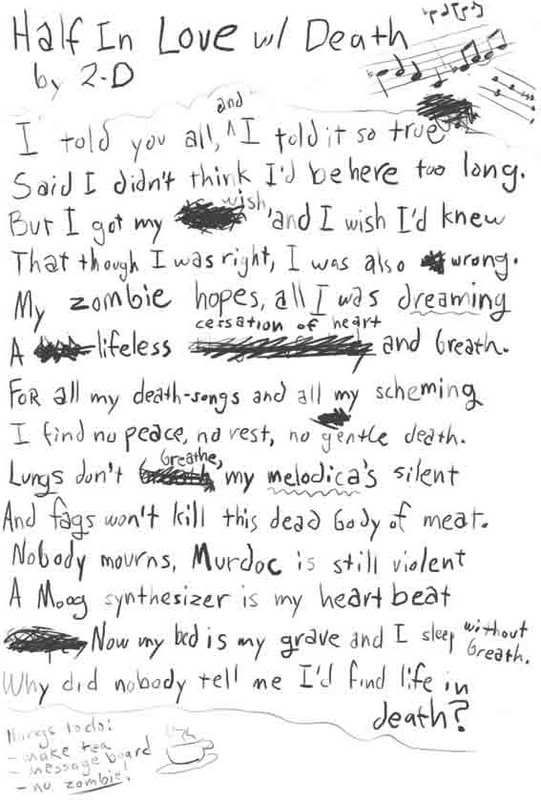 Half In Love w/ Death
by 2-D
and
I told you all, ^ I told it so true
Said I didn't think I'd be here too long.
wish,
But I got my and I wish I'd knew
That though I was right, I was also wrong.
My zombie hopes, all I was dreaming
cessation of heart
A lifeless and breath.
FOR all my death-songs and all my scheming
I find no peace, no rest, no gentle death.
breathe,
Lungs don't my melodica's silent
And fags won't kill this dead body of meat.
Nobody mourns, Murdoc is still violent
A Moog synthesizer is my heart beat
Now my bed is my grave and I sleep without breath.
Why did nobody tell me I'd find life in
death?
things to do:
- make tea
- message board
- nu zombie!